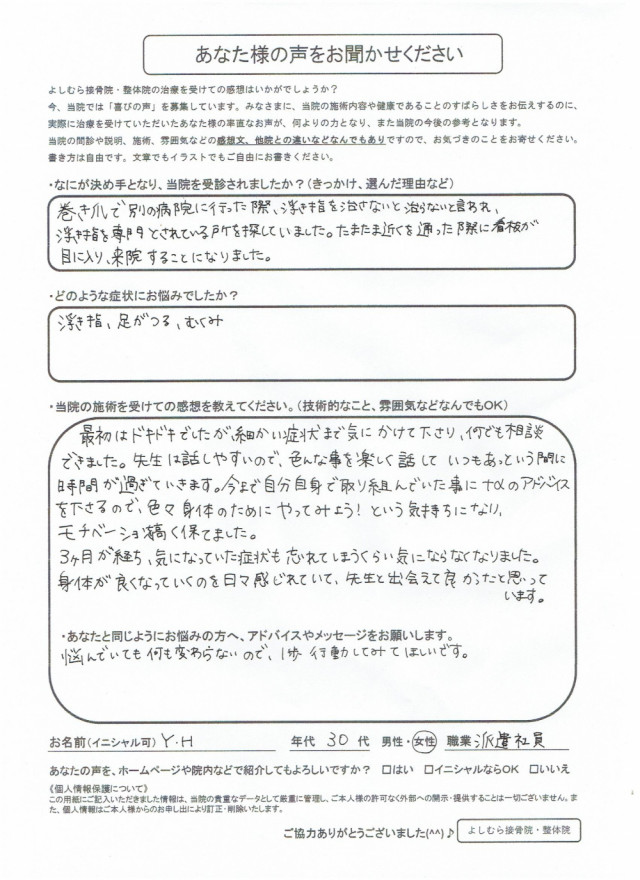 あなた様の声をお聞かせください
よしむら接骨院・整体院の治療を受けての感想はいかがでしょうか?
今、当院では「喜びの声」を募集しています。みなさまに、当院の施術内容や健康であることのすばらしさをお伝えするのに、
実際に治療を受けていただいたあなた様の率直なお声が、何よりの力となり、また当院の今後の参考となります。
当院の問診や説明、施術、雰囲気などの感想文、他院との違いなどなんでもありですので、お気づきのことをお寄せください。
書き方は自由です。文章でもイラストでもご自由にお書きください。
・なにが決め手となり、当院を受診されましたか?(きっかけ、選んだ理由など)
巻き爪で別の病院に行った際、浮き指を治さないと治らないと言われ、
浮き指を専門とされている所を探していました。たまたま近くを通った際に看板が
目に入り、来院することになりました。
・どのような症状にお悩みでしたか?
浮き指、足がつる、むくみ
・当院の施術を受けての感想を教えてください。(技術的なこと、雰囲気などなんでもOK)
最初はドキドキでしたが、細かい症状まで気にかけて下さり、何でも相談
できました。先生は話しやすいので、色んな事を楽しく話して いつもあっという間に
時間が過ぎていきます。今まで自分自身で取り組んでいた事に+αのアドバイス
を下さるので、色々身体のためにやってみよう!という気持ちになり、
モチベーション高く保てました。
3ヶ月が経ち、気になっていた症状も忘れてしまうくらい気にならなくなりました。
身体が良くなっていくのを日々感じれていて、先生と出会えて良かったと思って
います。
・あなたと同じようにお悩みの方へ、アドバイスやメッセージをお願いします。
悩んでいても何も変わらないので、1歩 行動してみてほしいです。
お名前(イニシャル可) Y・H 年代 30 代 男性・女性 職業 派遣社員
あなたの声を、ホームページや院内などで紹介してもよろしいですか? □はい □イニシャルならOK □いいえ
《個人情報保護について》
この用紙にご記入いただきました情報は、当院の貴重なデータとして厳重に管理し、ご本人様の許可なく外部への開示・提供することは一切ございません。ま
た、個人情報はご本人様からのお申し出により訂正・削除いたします。
ご協力ありがとうございました(^^)♪ よしむら接骨院・整体院